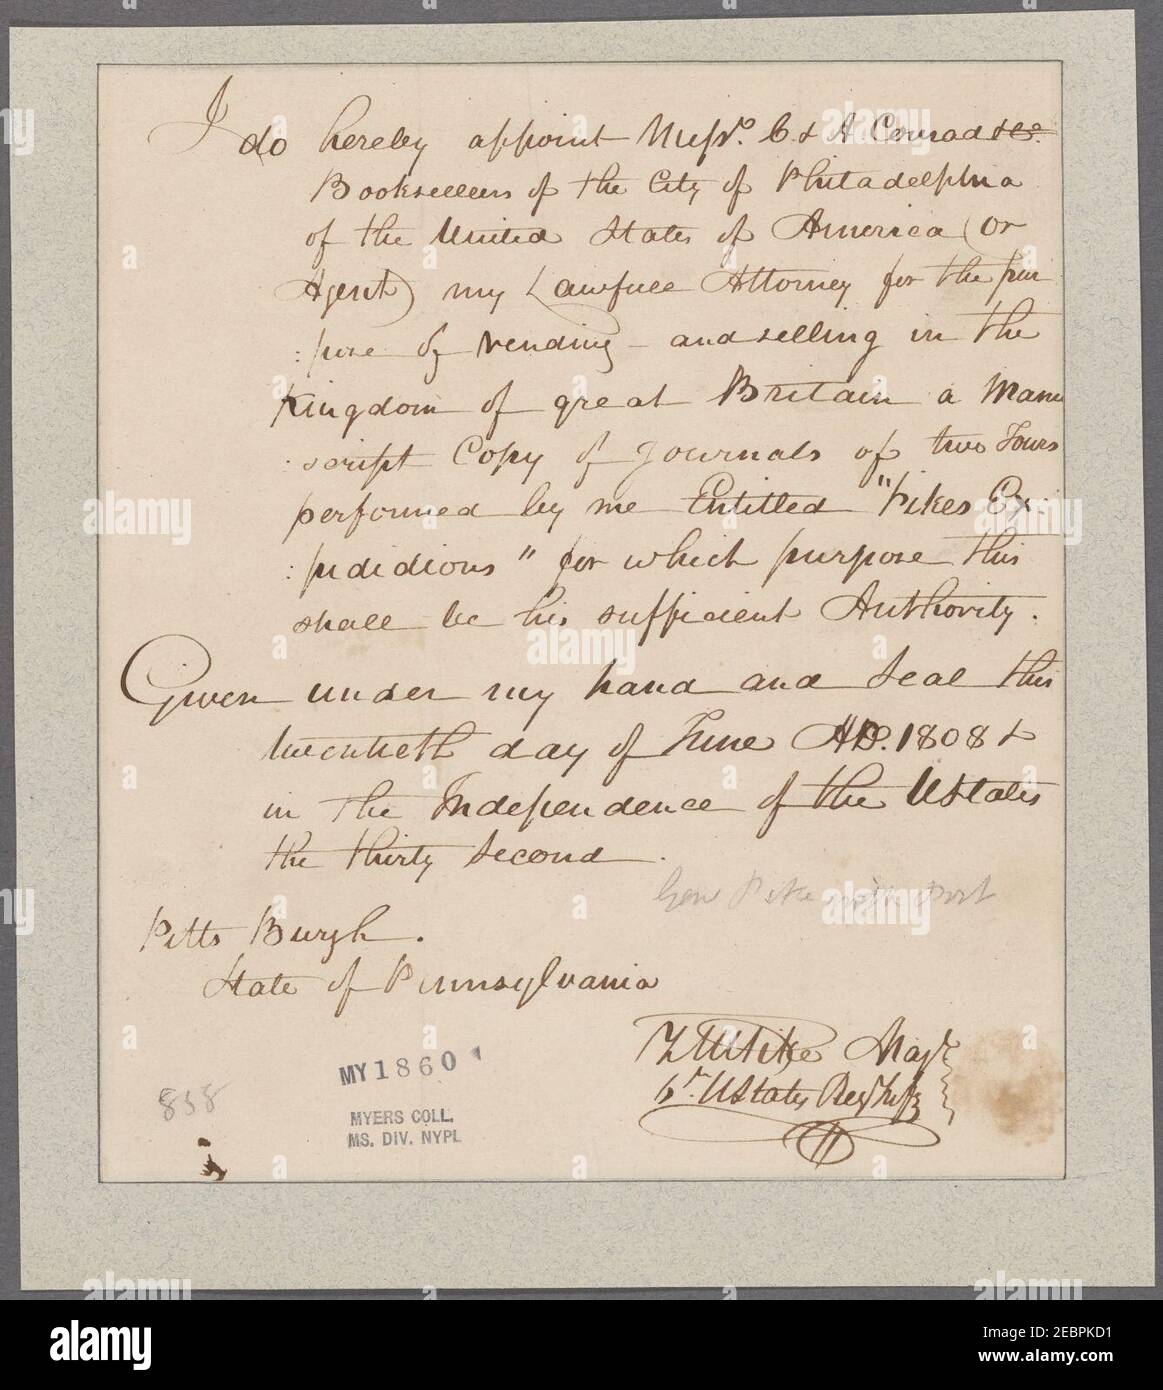 I do hereby appoint Messrs. C & A Conrad & Co.
Booksellers of the City of Philadelphia
of the United States of America (or
Agent) my Lawfull Attorney for the pur
:pose of vending and selling in the
Kingdom of great Britain a Manu
:script Copy of Journals of two Tours
performed by me Entitled "Pikes Ex:
:pididions" for which purpose this
shall be his sufficient Authority.
Given under my hand and Seal this
twentieth day of June AD. 1808 &
in the Independence of the UStates
the thirty Second.
Genl Pike
Pitts Burgh.
State of Pennsylvania
Z M Pike Majr
6r. UStates Regt Infy
858
MY 1860
MYERS COLL.
MS. DIV. NYPL
alamy
Image ID: 2EBPKD1
www.alamy.com